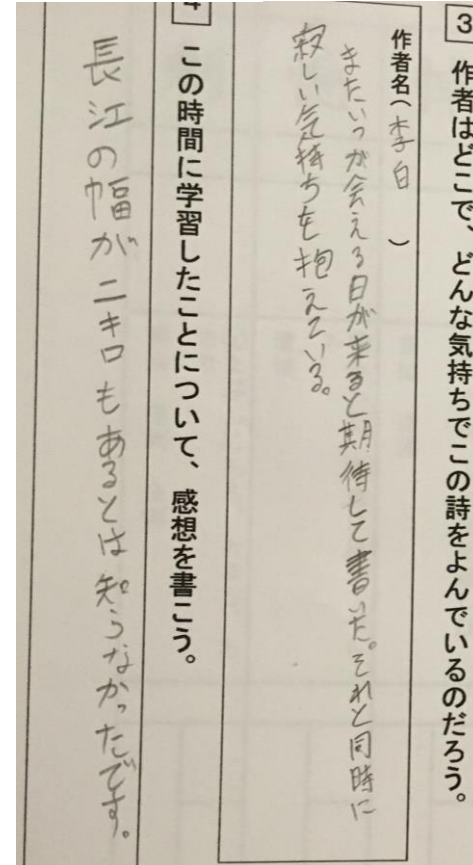 3 作者はどこで、どんな気持ちでこの詩をよんでいるのだろう。
作者名(李白)
またいつか会える日が来ると期待して書いた。それと同時に
寂しい気持ちを抱えている。
4 この時間に学習したことについて、感想を書こう。
長江の幅が二キロもあるとは知らなかったです。